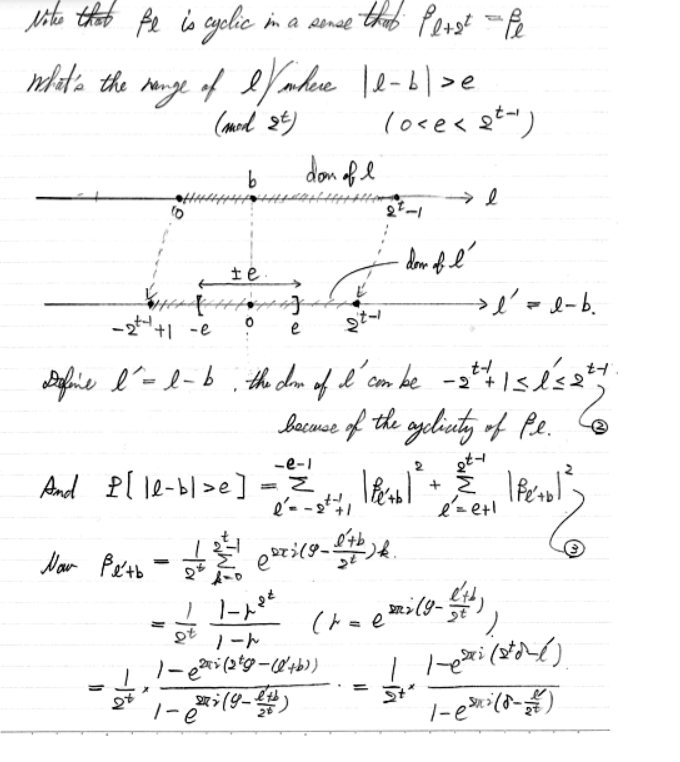 Note that βℓ is cyclic in a sense that β_{ℓ+2^t} = β_ℓ
What's the range of ℓ / where |ℓ-b| > e
(mod 2^t) (0<e<2^{t-1})
b dom of ℓ
0 2^t-1 → ℓ
±e dom of ℓ'
-2^{t-1}+1 -e 0 e 2^{t-1} → ℓ' = ℓ-b.
Define ℓ' = ℓ-b, the dom of ℓ' can be -2^{t-1}+1 ≤ ℓ' ≤ 2^{t-1}
because of the cyclicity of βℓ. ②
And P[|ℓ-b|>e] = Σ_{ℓ'=-2^{t-1}+1}^{-e-1} |β_{ℓ'+b}|^2 + Σ_{ℓ'=e+1}^{2^{t-1}} |β_{ℓ'+b}|^2
③
Now β_{ℓ'+b} = 1/2^t Σ_{k=0}^{2^t-1} e^{2πi(φ-(ℓ'+b)/2^t)k}
= 1/2^t (1-r^{2^t})/(1-r) (r = e^{2πi(φ-(ℓ'+b)/2^t)})
= 1/2^t × (1-e^{2πi(2^tφ-(ℓ'+b))})/(1-e^{2πi(φ-(ℓ'+b)/2^t)}) . = 1/2^t × (1-e^{2πi(2^tδ-ℓ')})/(1-e^{2πi(δ-ℓ'/2^t)})